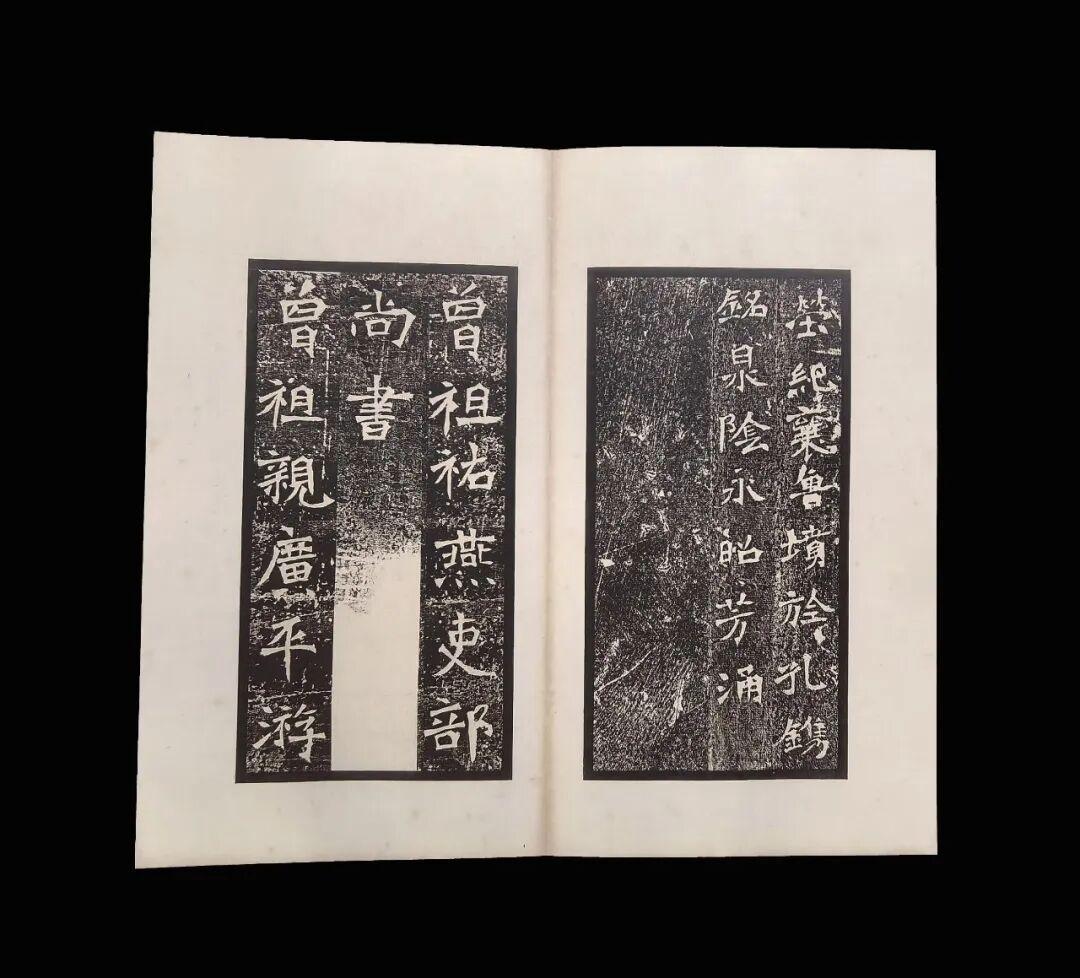 塋紀襄魯墳於孔鐫
銘泉陰永昭芳涌
曾祖祐燕吏部
尚書
曾祖親廣平游